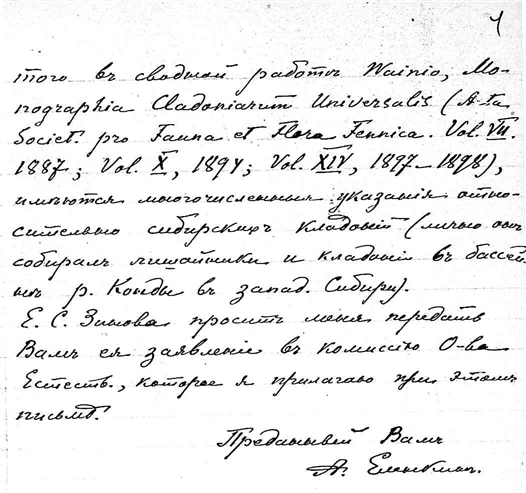 4
того въ сводной работѣ Wainio, Mo-
nographia Cladoniarum Universalis (Acta
Societ. pro Fauna et Flora Fennica. Vol. VII.
1887; Vol. X, 1894; Vol. XIV, 1897–1898),
имѣются многочисленныя указанія отно-
сительно сибирскихъ кладоній (лично онъ
собиралъ лишайники и кладоніи въ бассей-
нѣ р. Конды въ запад. Сибири).
Е. С. Зинова проситъ меня передать
Вамъ ея заявленіе въ комиссію О-ва
Естеств., которое я прилагаю при этомъ
письмѣ.
Преданный Вамъ
А. Еленкинъ.